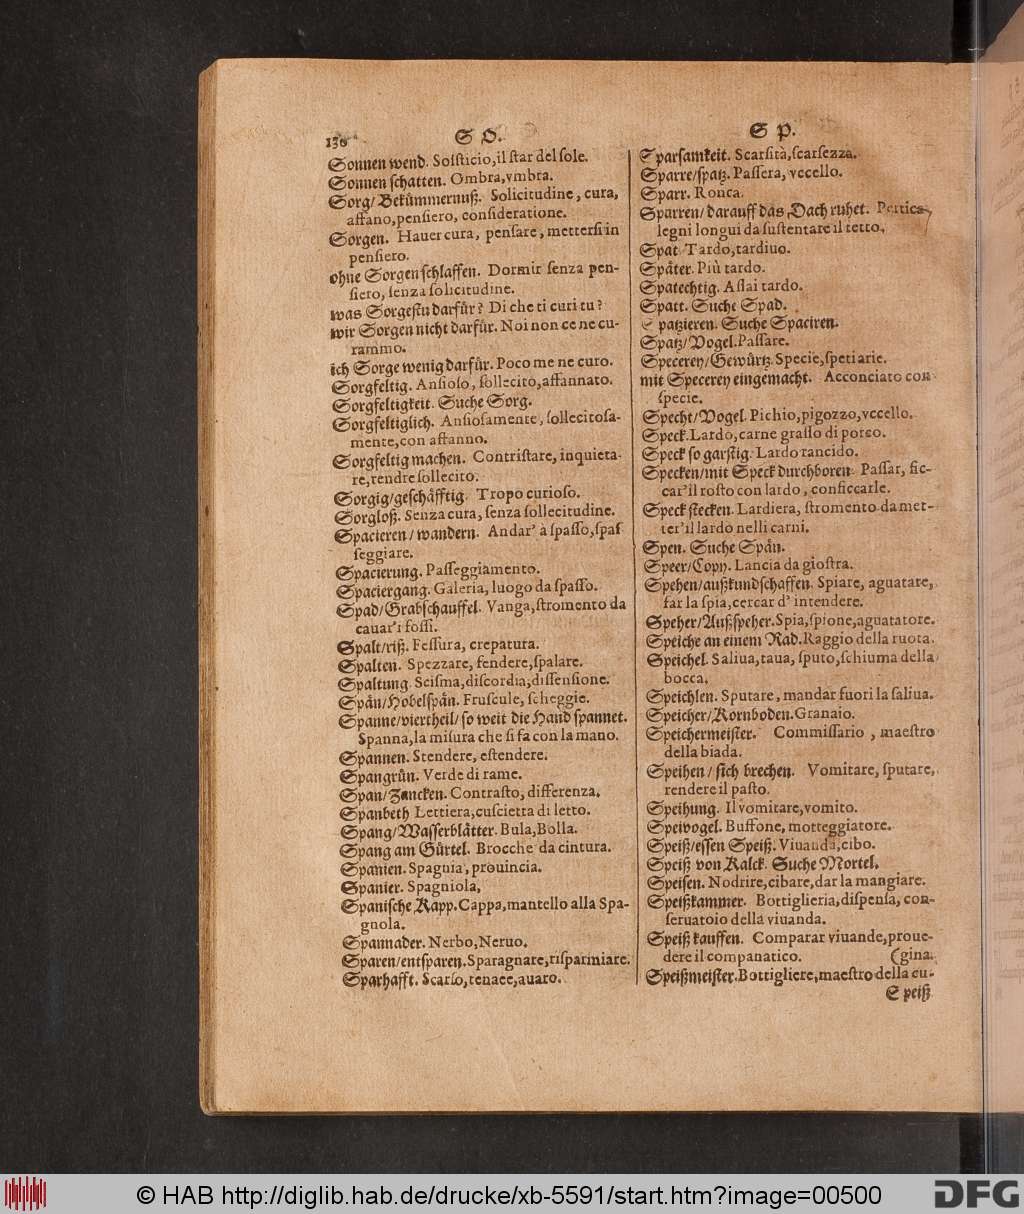 130 S O.
Sonnen wend. Solsticio, il star del sole.
Sonnen schatten. Ombra, vmbra.
Sorg/ Bekům̃ernuß. Solicitudine, cura,
affano, pensiero, consideratione.
Sorgen. Hauer cura, pensare, mettersi in
pensiero.
ohne Sorgen schlaffen. Dormir senza pen-
siero, senza solicitudine.
was Sorgestu darfůr? Di che ti curi tu?
wir Sorgen nicht darfůr. Noi non ce ne cu-
rammo.
ich Sorge wenig darfůr. Poco me ne curo.
Sorgfeltig. Ansioso, sollecito, affannato.
Sorgfeltigkeit. Suche Sorg.
Sorgfeltiglich. Ansiosamente, sollecitosa-
mente, con affanno.
Sorgfeltig machen. Contristare, inquieta-
re, rendre sollecito.
Sorgig/geschåfftig. Tropo curioso.
Sorgloß. Senza cura, senza sollecitudine.
Spacieren/ wandern. Andar' à spasso, spas
seggiare.
Spacierung. Passeggiamento.
Spaciergang. Galeria, luogo da spasso.
Spad/Grabschauffel. Vanga, stromento da
cauar'i fossi.
Spalt/riß. Fessura, crepatura.
Spalten. Spezzare, fendere, spalare.
Spaltung. Scisma, discordia, dissensione.
Spån/Hobelspån. Fruscule, scheggie.
Spanne/viertheil/ so weit die Hand spannet.
Spanna, la misura che si fa con la mano.
Spannen. Stendere, estendere.
Spangrůn. Verde di rame.
Span/Zancken. Contrasto, differenza.
Spanbeth Lettiera, cuscietta di letto.
Spang/Wasserblåtter. Bula, Bolla.
Spang am Gůrtel. Brocche da cintura.
Spanien. Spagnia, prouincia.
Spanier. Spagniola,
Spanische Kapp. Cappa, mantello alla Spa-
gnola.
Spannader. Nerbo, Neruo.
Sparen/entsparen. Sparagnare, risparmiare.
Sparhafft. Scarso, tenace, auaro.
S P.
Sparsamkeit. Scarsità, scarsezza.
Sparre/spatz. Passera, vccello.
Sparr. Ronca.
Sparren/ darauff das Dach ruhet. Pertica,
legni longui da sustentare il tetto.
Spat. Tardo, tardiuo.
Spåter. Più tardo.
Spatechtig. Assai tardo.
Spatt. Suche Spad.
Spatzieren. Suche Spaciren.
Spatz/Vogel. Passare.
Specerey/Gewůrtz. Specie, spetiarie.
mit Specerey eingemacht. Acconciato con
specie.
Specht/Vogel. Pichio, pigozzo, vccello.
Speck. Lardo, carne grasso di porco.
Speck so garstig. Lardo rancido.
Specken/mit Speck durchboren. Passar, fic-
car'il rosto con lardo, conficcarle.
Speck stecken. Lardiera, stromento da met-
ter'il lardo nelli carni.
Spen. Suche Spån.
Speer/Copy. Lancia da giostra.
Spehen/außkundschaffen. Spiare, aguatare,
far la spia, cercar d' intendere.
Speher/Außspeher. Spia, spione, aguatatore.
Speiche an einem Rad. Raggio della ruota.
Speichel. Saliua, taua, sputo, schiuma della
bocca.
Speichlen. Sputare, mandar fuori la saliua.
Speicher/Kornboden. Granaio.
Speichermeister. Commissario, maestro
della biada.
Speihen/ sich brechen. Vomitare, sputare,
rendere il pasto.
Speihung. Il vomitare, vomito.
Speivogel. Buffone, motteggiatore.
Speiß/essen Speiß. Viuanda, cibo.
Speiß von Kalck. Suche Mortel.
Speisen. Nodrire, cibare, dar la mangiare.
Speißkammer. Bottiglieria, dispensa, con-
seruatoio della viuanda.
Speiß kauffen. Comparar viuande, proue-
dere il companatico. (gina.
Speißmeister. Bottigliere, maestro della cu-
Speiß
© HAB http://diglib.hab.de/drucke/xb-5591/start.htm?image=00500
DFG